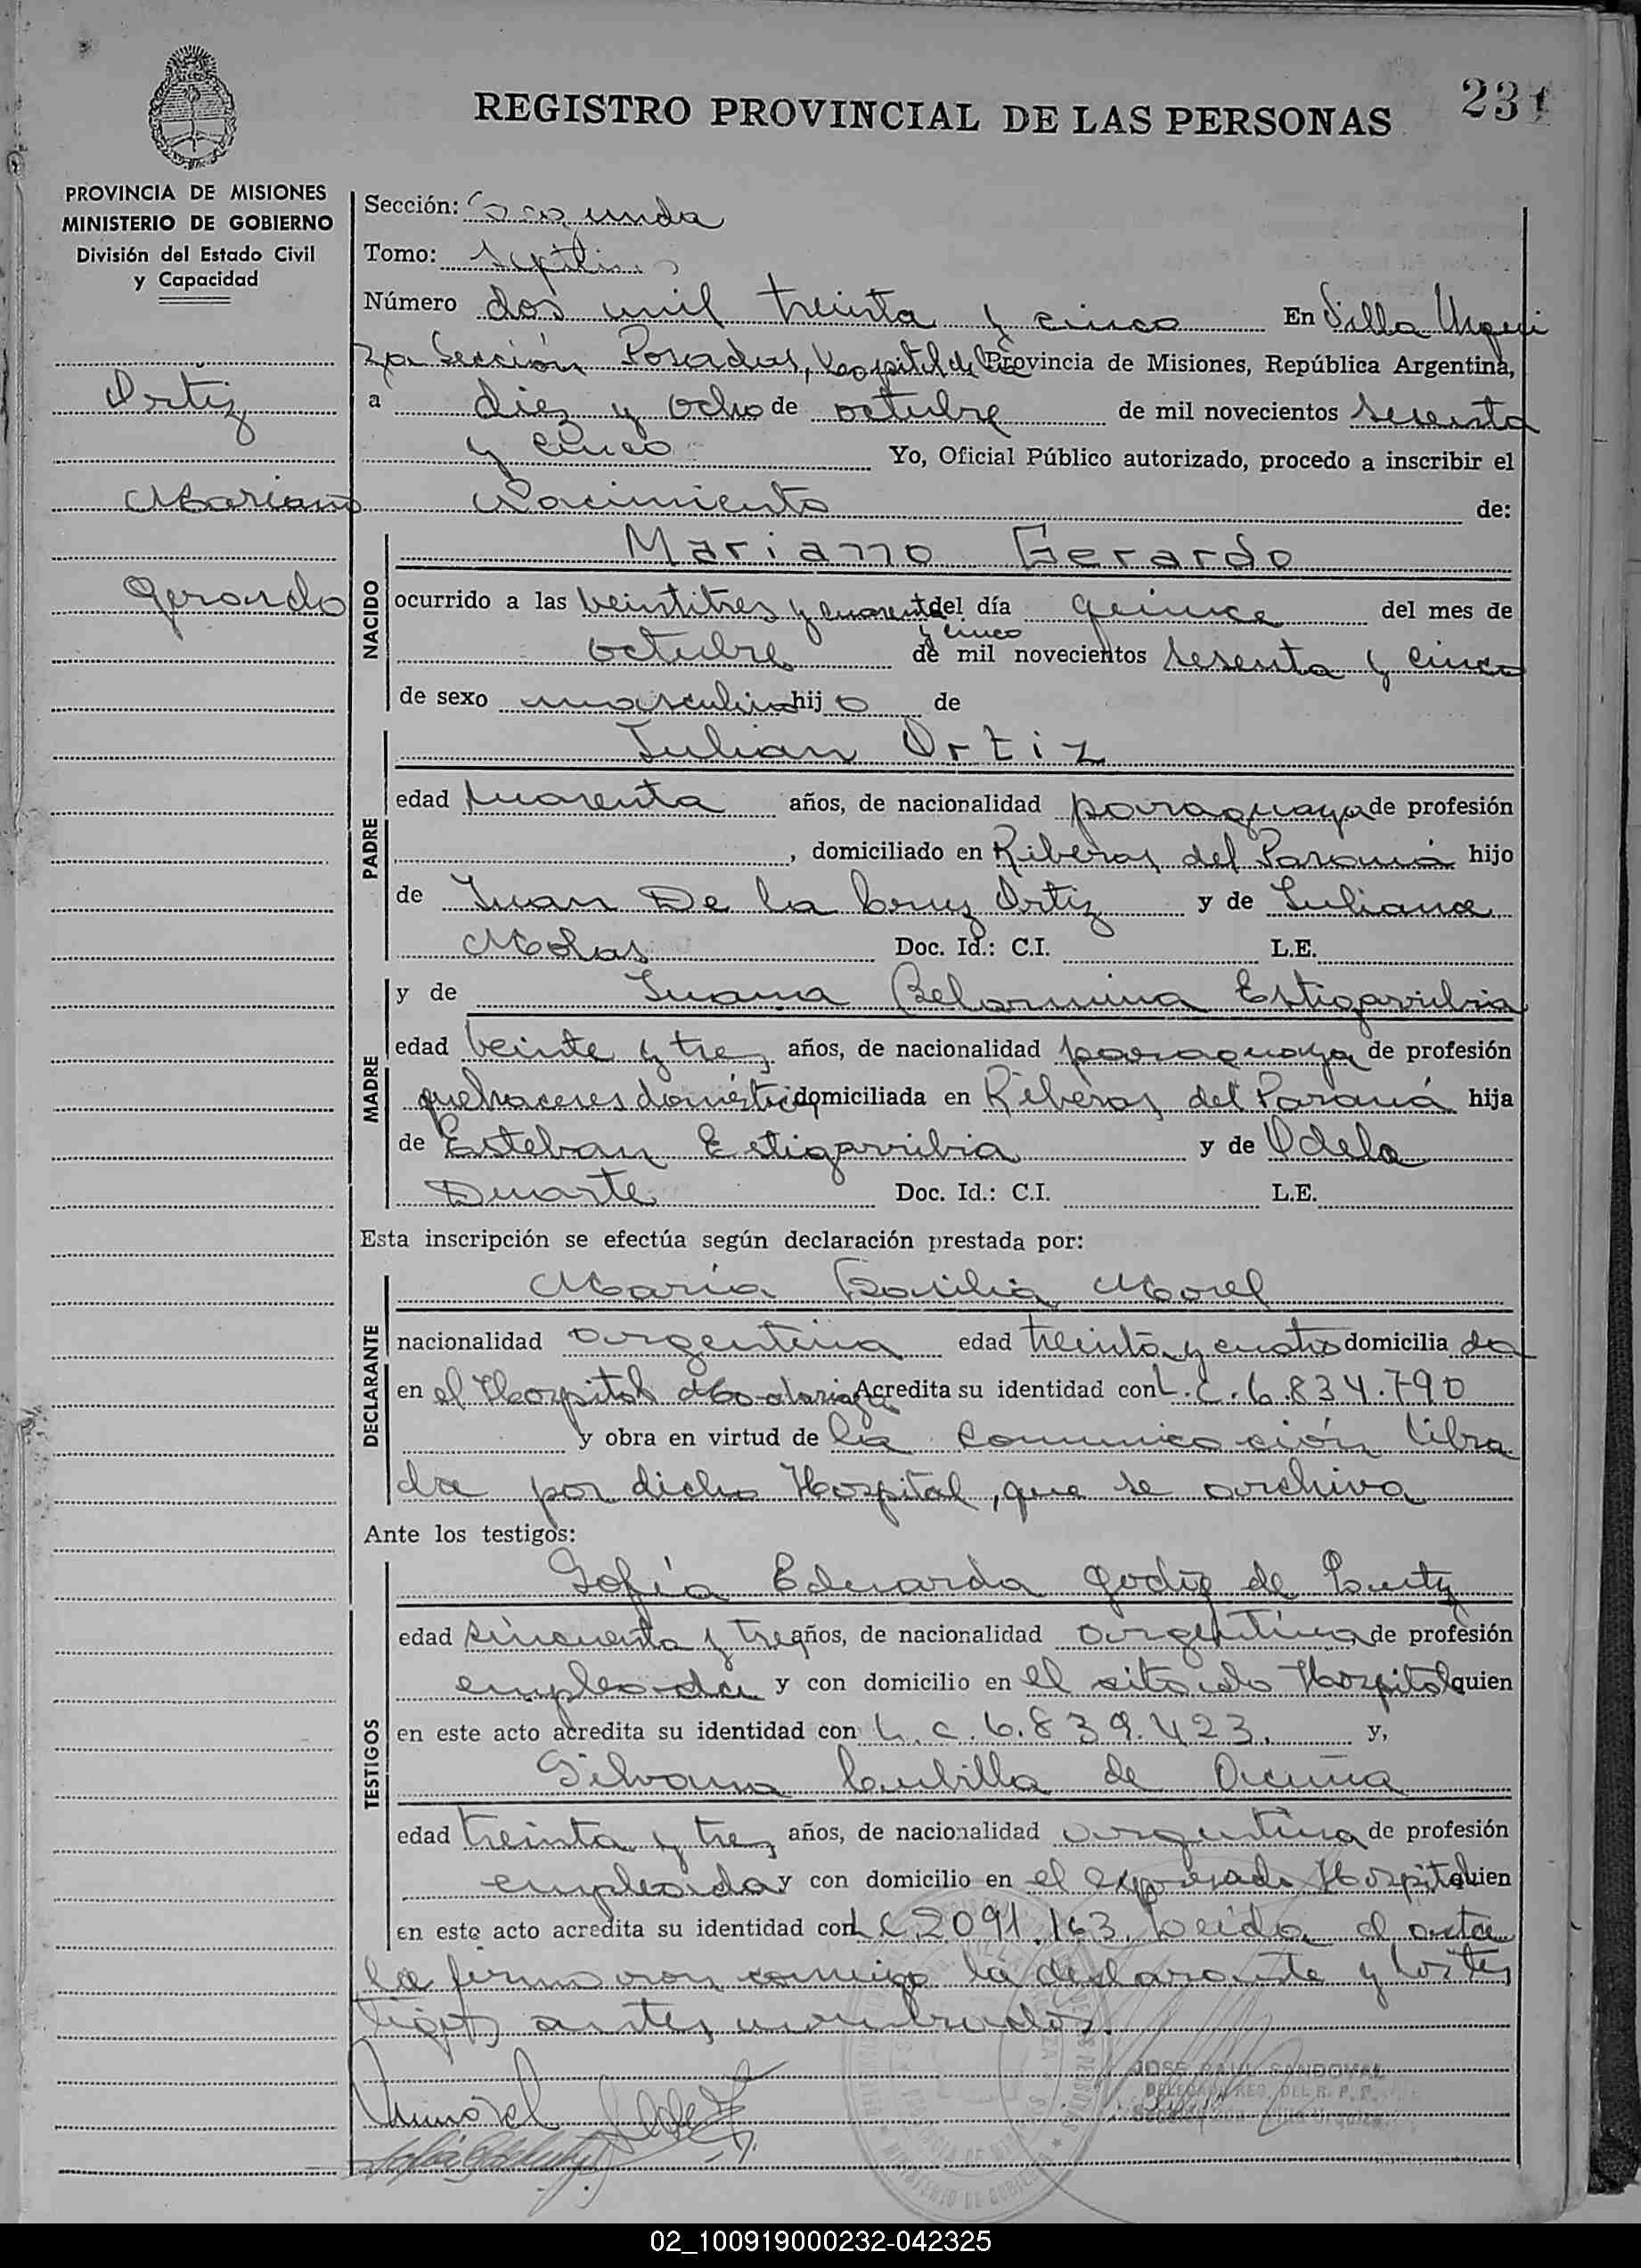 REGISTRO PROVINCIAL DE LAS PERSONAS
231
PROVINCIA DE MISIONES
MINISTERIO DE GOBIERNO
División del Estado Civil
y Capacidad
Ortiz
Mariano
Gerardo
Sección: Segunda
Tomo: Septimo
Número dos mil treinta y cinco En Villa Urqui
za Sección Posadas, Capital de la Provincia de Misiones, República Argentina,
a diez y ocho de octubre de mil novecientos sesenta
y cinco Yo, Oficial Público autorizado, procedo a inscribir el
Nacimiento de:
NACIDO
Mariano Gerardo
ocurrido a las veintitres y cuarenta y cinco del día quince del mes de
octubre de mil novecientos sesenta y cinco
de sexo masculino hijo de
PADRE
Julian Ortiz
edad cuarenta años, de nacionalidad paraguaya de profesión
, domiciliado en Riberas del Paraná hijo
de Juan De la Cruz Ortiz y de Juliana
Molas Doc. Id.: C.I. L.E.
MADRE
y de Juana Belarmina Estigarribia
edad veinte y tres años, de nacionalidad paraguaya de profesión
quehaceres domésticos domiciliada en Riberas del Paraná hija
de Esteban Estigarribia y de Odela
Duarte Doc. Id.: C.I. L.E.
Esta inscripción se efectúa según declaración prestada por:
DECLARANTE
María Morel
nacionalidad argentina edad treinta y cuatro domiciliada
en el Hospital Acredita su identidad con L.C. 6.834.790
y obra en virtud de la comunicación libra
da por dicho Hospital, que se archiva
Ante los testigos:
TESTIGOS
Sofía Eduarda de
edad cincuenta y tres años, de nacionalidad argentina de profesión
empleada y con domicilio en el citado Hospital quien
en este acto acredita su identidad con L.C. 6.839.423. y,
Silvana Cubilla de Acuña
edad treinta y tres años, de nacionalidad argentina de profesión
empleada y con domicilio en el expresado Hospital quien
en este acto acredita su identidad con L C 2091.163. Leída el acta
la firmaron conmigo la declarante y los tes
tigos antes nombrados.
JOSE RAUL SANDOVAL
DELEGADO REG. DEL R. P. P.
02_100919000232-042325